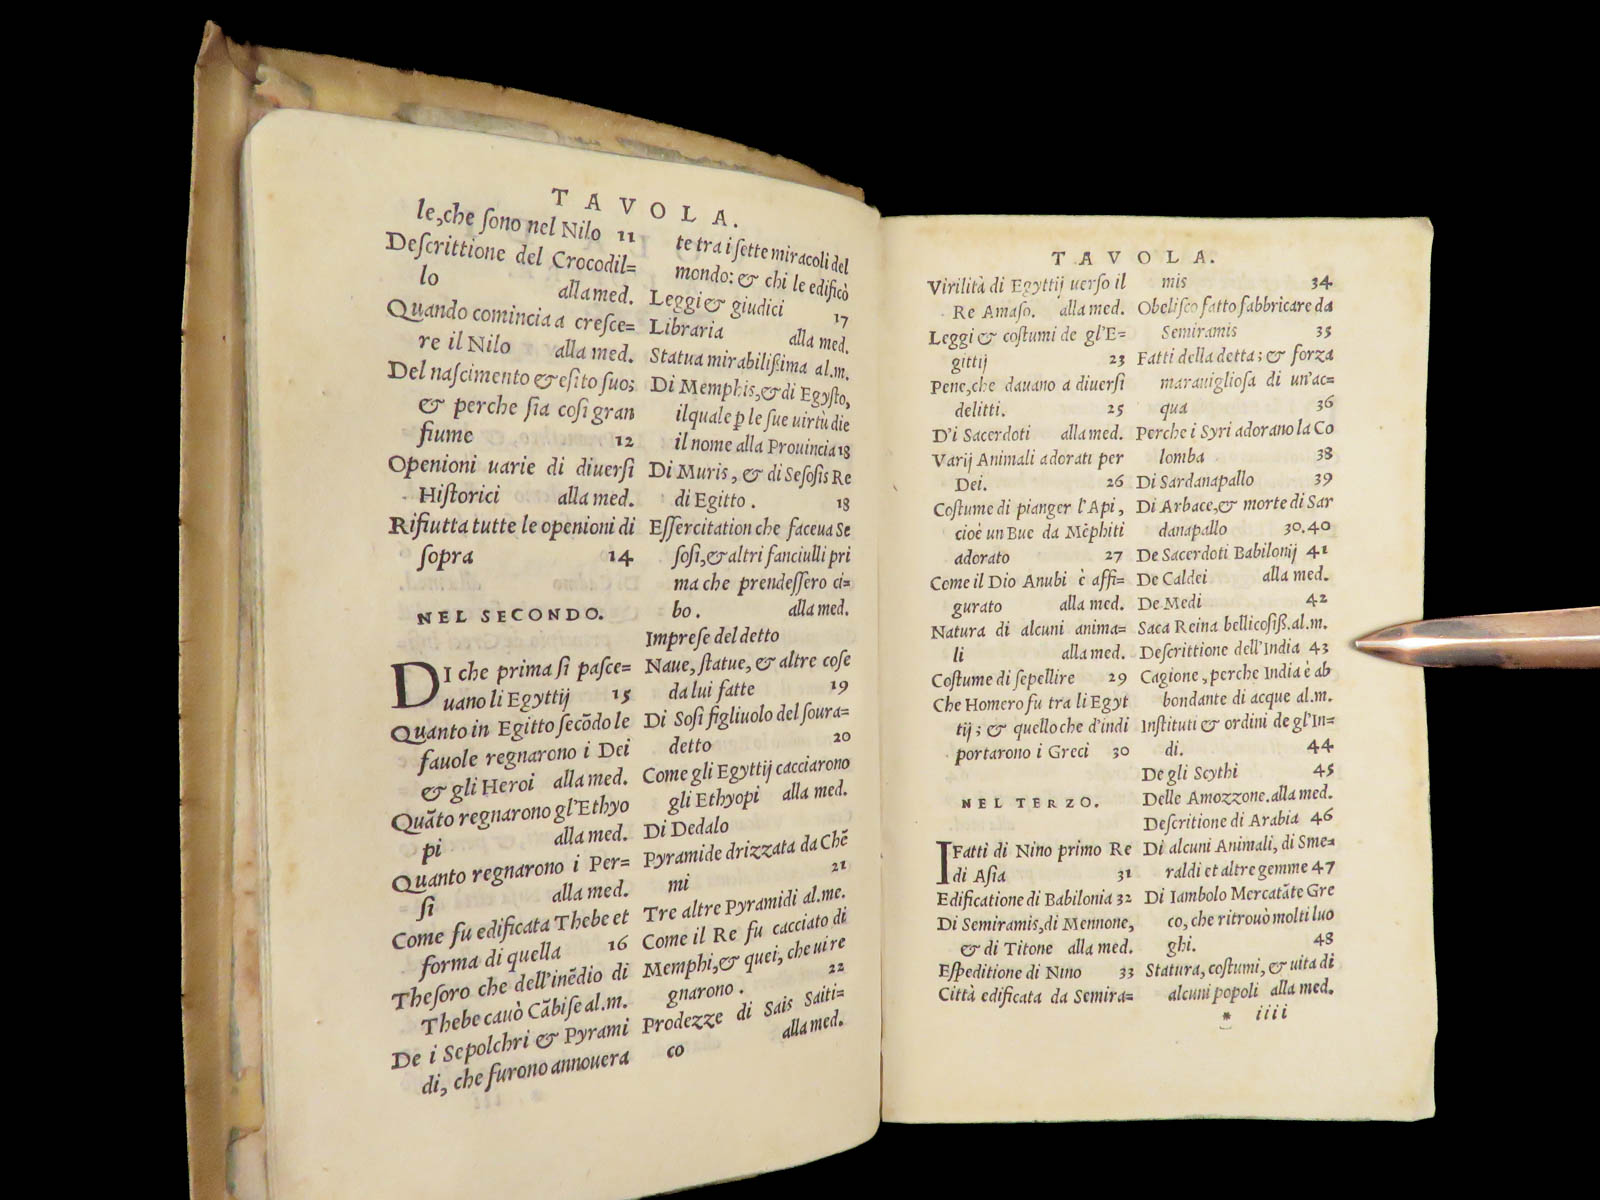 TAVOLA.
le, che ſono nel Nilo 11
Deſcrittione del Crocodil=
lo alla med.
Quando comincia a creſce=
re il Nilo alla med.
Del naſcimento & eſito ſuo;
& perche ſia coſi gran
fiume 12
Openioni uarie di diuerſi
Hiſtorici alla med.
Rifiutta tutte le openioni di
ſopra 14
NEL SECONDO.
DI che prima ſi paſce=
uano li Egyttij 15
Quanto in Egitto ſecōdo le
fauole regnarono i Dei
& gli Heroi alla med.
Quāto regnarono gl'Ethyo
pi alla med.
Quanto regnarono i Per=
ſi alla med.
Come fu edificata Thebe et
forma di quella 16
Theſoro che dell'inēdio di
Thebe cauò Cābiſe al.m.
De i Sepolchri & Pyrami
di, che furono annouera
te tra i ſette miracoli del
mondo: & chi le edificò
Leggi & giudici 17
Libraria alla med.
Statua mirabilißima al.m.
Di Memphis, & di Egyſto,
ilquale ꝑ le ſue uirtù die
il nome alla Prouincia 18
Di Muris, & di Seſoſis Re
di Egitto. 18
Eſſercitation che faceua Se
ſoſi, & altri fanciulli pri
ma che prendeſſero ci=
bo. alla med.
Impreſe del detto
Naue, ſtatue, & altre coſe
da lui fatte 19
Di Soſi figliuolo del ſoura=
detto 20
Come gli Egyttij cacciarono
gli Ethyopi alla med.
Di Dedalo
Pyramide drizzata da Chē
mi 21
Tre altre Pyramidi al.me.
Come il Re fu cacciato di
Memphi, & quei, che ui re
gnarono. 22
Prodezze di Sais Saiti=
co alla med.
TAVOLA.
Virilità di Egyttij uerſo il
Re Amaſo. alla med.
Leggi & coſtumi de gl'E=
gittij 23
Pene, che dauano a diuerſi
delitti. 25
D'i Sacerdoti alla med.
Varij Animali adorati per
Dei. 26
Coſtume di pianger l'Api,
cioè un Bue da Mēphiti
adorato 27
Come il Dio Anubi è affi=
gurato alla med.
Natura di alcuni anima=
li alla med.
Coſtume di ſepellire 29
Che Homero fu tra li Egyt
tij; & quello che d'indi
portarono i Greci 30
NEL TERZO.
I Fatti di Nino primo Re
di Aſia 31
Edificatione di Babilonia 32
Di Semiramis, di Mennone,
& di Titone alla med.
Eſpeditione di Nino 33
Città edificata da Semira=
mis 34
Obeliſco fatto fabbricare da
Semiramis 35
Fatti della detta; & forza
marauiglioſa di un'ac=
qua 36
Perche i Syri adorano la Co
lomba 38
Di Sardanapallo 39
Di Arbace, & morte di Sar
danapallo 30.40
De Sacerdoti Babilonij 41
De Caldei alla med.
De Medi 42
Saca Reina bellicoſiß. al.m.
Deſcrittione dell'India 43
Cagione, perche India è ab
bondante di acque al.m.
Inſtituti & ordini de gl'In=
di. 44
De gli Scythi 45
Delle Amozzone. alla med.
Deſcritione di Arabia 46
Di alcuni Animali, di Sme=
raldi et altre gemme 47
Di Iambolo Mercatāte Gre
co, che ritrouò molti luo
ghi. 48
Statura, coſtumi, & uita di
alcuni popoli alla med.
* iiii